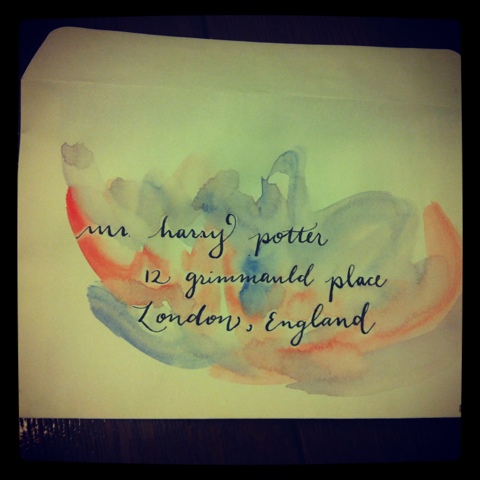 mr. harry potter
12 grimmauld place
London, England